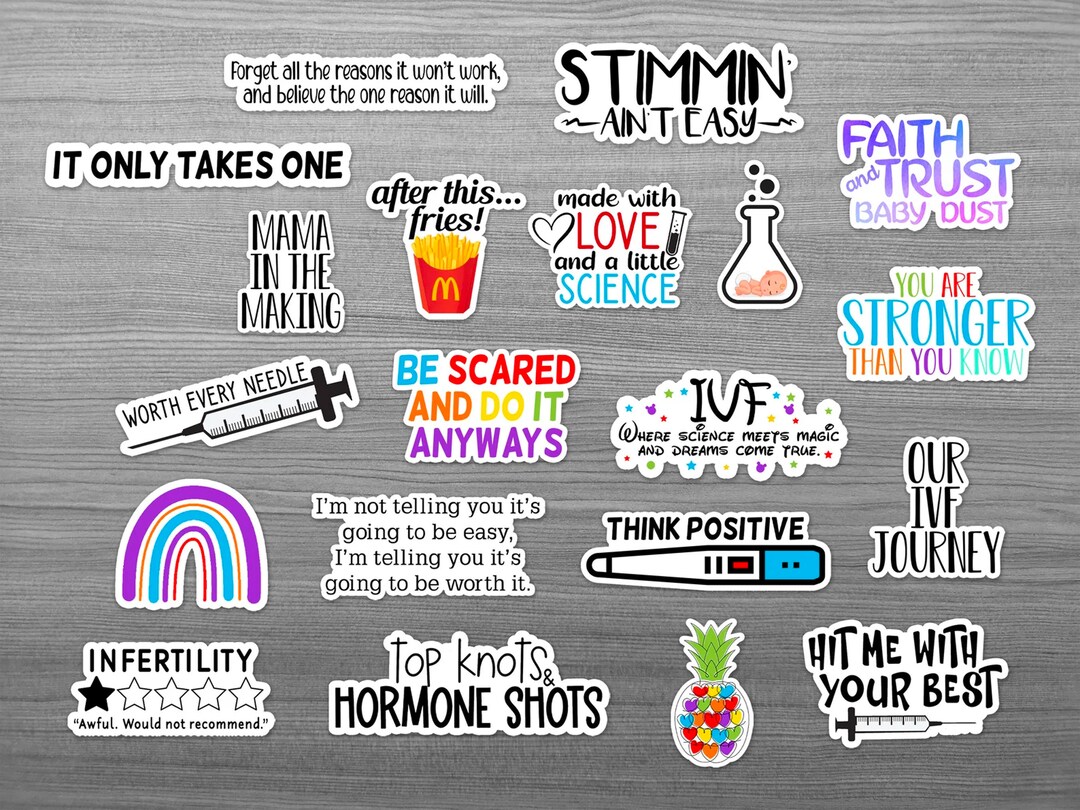 Forget all the reasons it won't work,
and believe the one reason it will.
STIMMIN'
AIN'T EASY
FAITH
and TRUST
BABY DUST
IT ONLY TAKES ONE
after this...
fries!
M
made with
LOVE
and a little
SCIENCE
MAMA
IN THE
MAKING
YOU ARE
STRONGER
THAN YOU KNOW
WORTH EVERY NEEDLE
BE SCARED
AND DO IT
ANYWAYS
IVF
WHERE SCIENCE MEETS MAGIC
AND DREAMS COME TRUE.
OUR
IVF
JOURNEY
I'm not telling you it's
going to be easy,
I'm telling you it's
going to be worth it.
THINK POSITIVE
INFERTILITY
"Awful. Would not recommend."
top knots
&
HORMONE SHOTS
HIT ME WITH
YOUR BEST